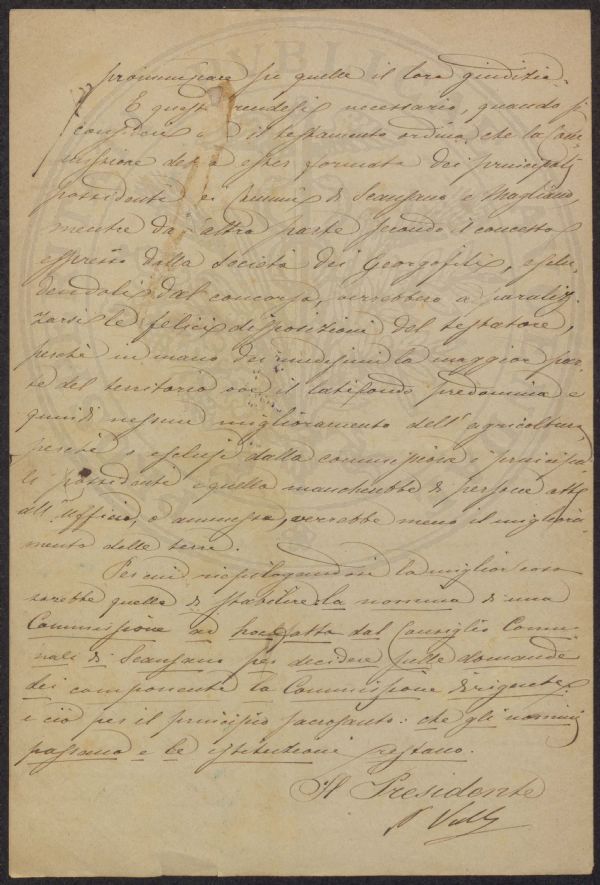 pronunziare su quelle il loro giudizio.
E questo rendesi necessario, quando si
consideri che il testamento ordina che la Com-
missione debba esser formata dei principali
possidenti dei Comuni di Scansano e Magliano,
mentre da altra parte secondo il concetto
espresso dalla Società dei Georgofili, esclu-
dendoli dal concorso, verrebbero a paraliz-
zarsi le felici disposizioni del testatore,
perchè in mano dei medesimi la maggior par-
te del territorio ove il latifondo predomina e
quindi nessun miglioramento dell'agricoltura,
perchè o esclusi dalla commissione i principa-
li possidenti e quella mancherebbe di persone atte
all'Ufficio, o ammessa, verrebbe meno il migliora-
mento delle terre.
Per cui riepilogando la miglior cosa
sarebbe quella di stabilire la nomina di una
Commissione ad hoc fatta dal Consiglio Comu-
nale di Scansano per decidere sulle domande
dei componenti la Commissione dirigente
e ciò per il principio sacrosanto: che gli uomini
passano e le istituzioni restano.
Il Presidente